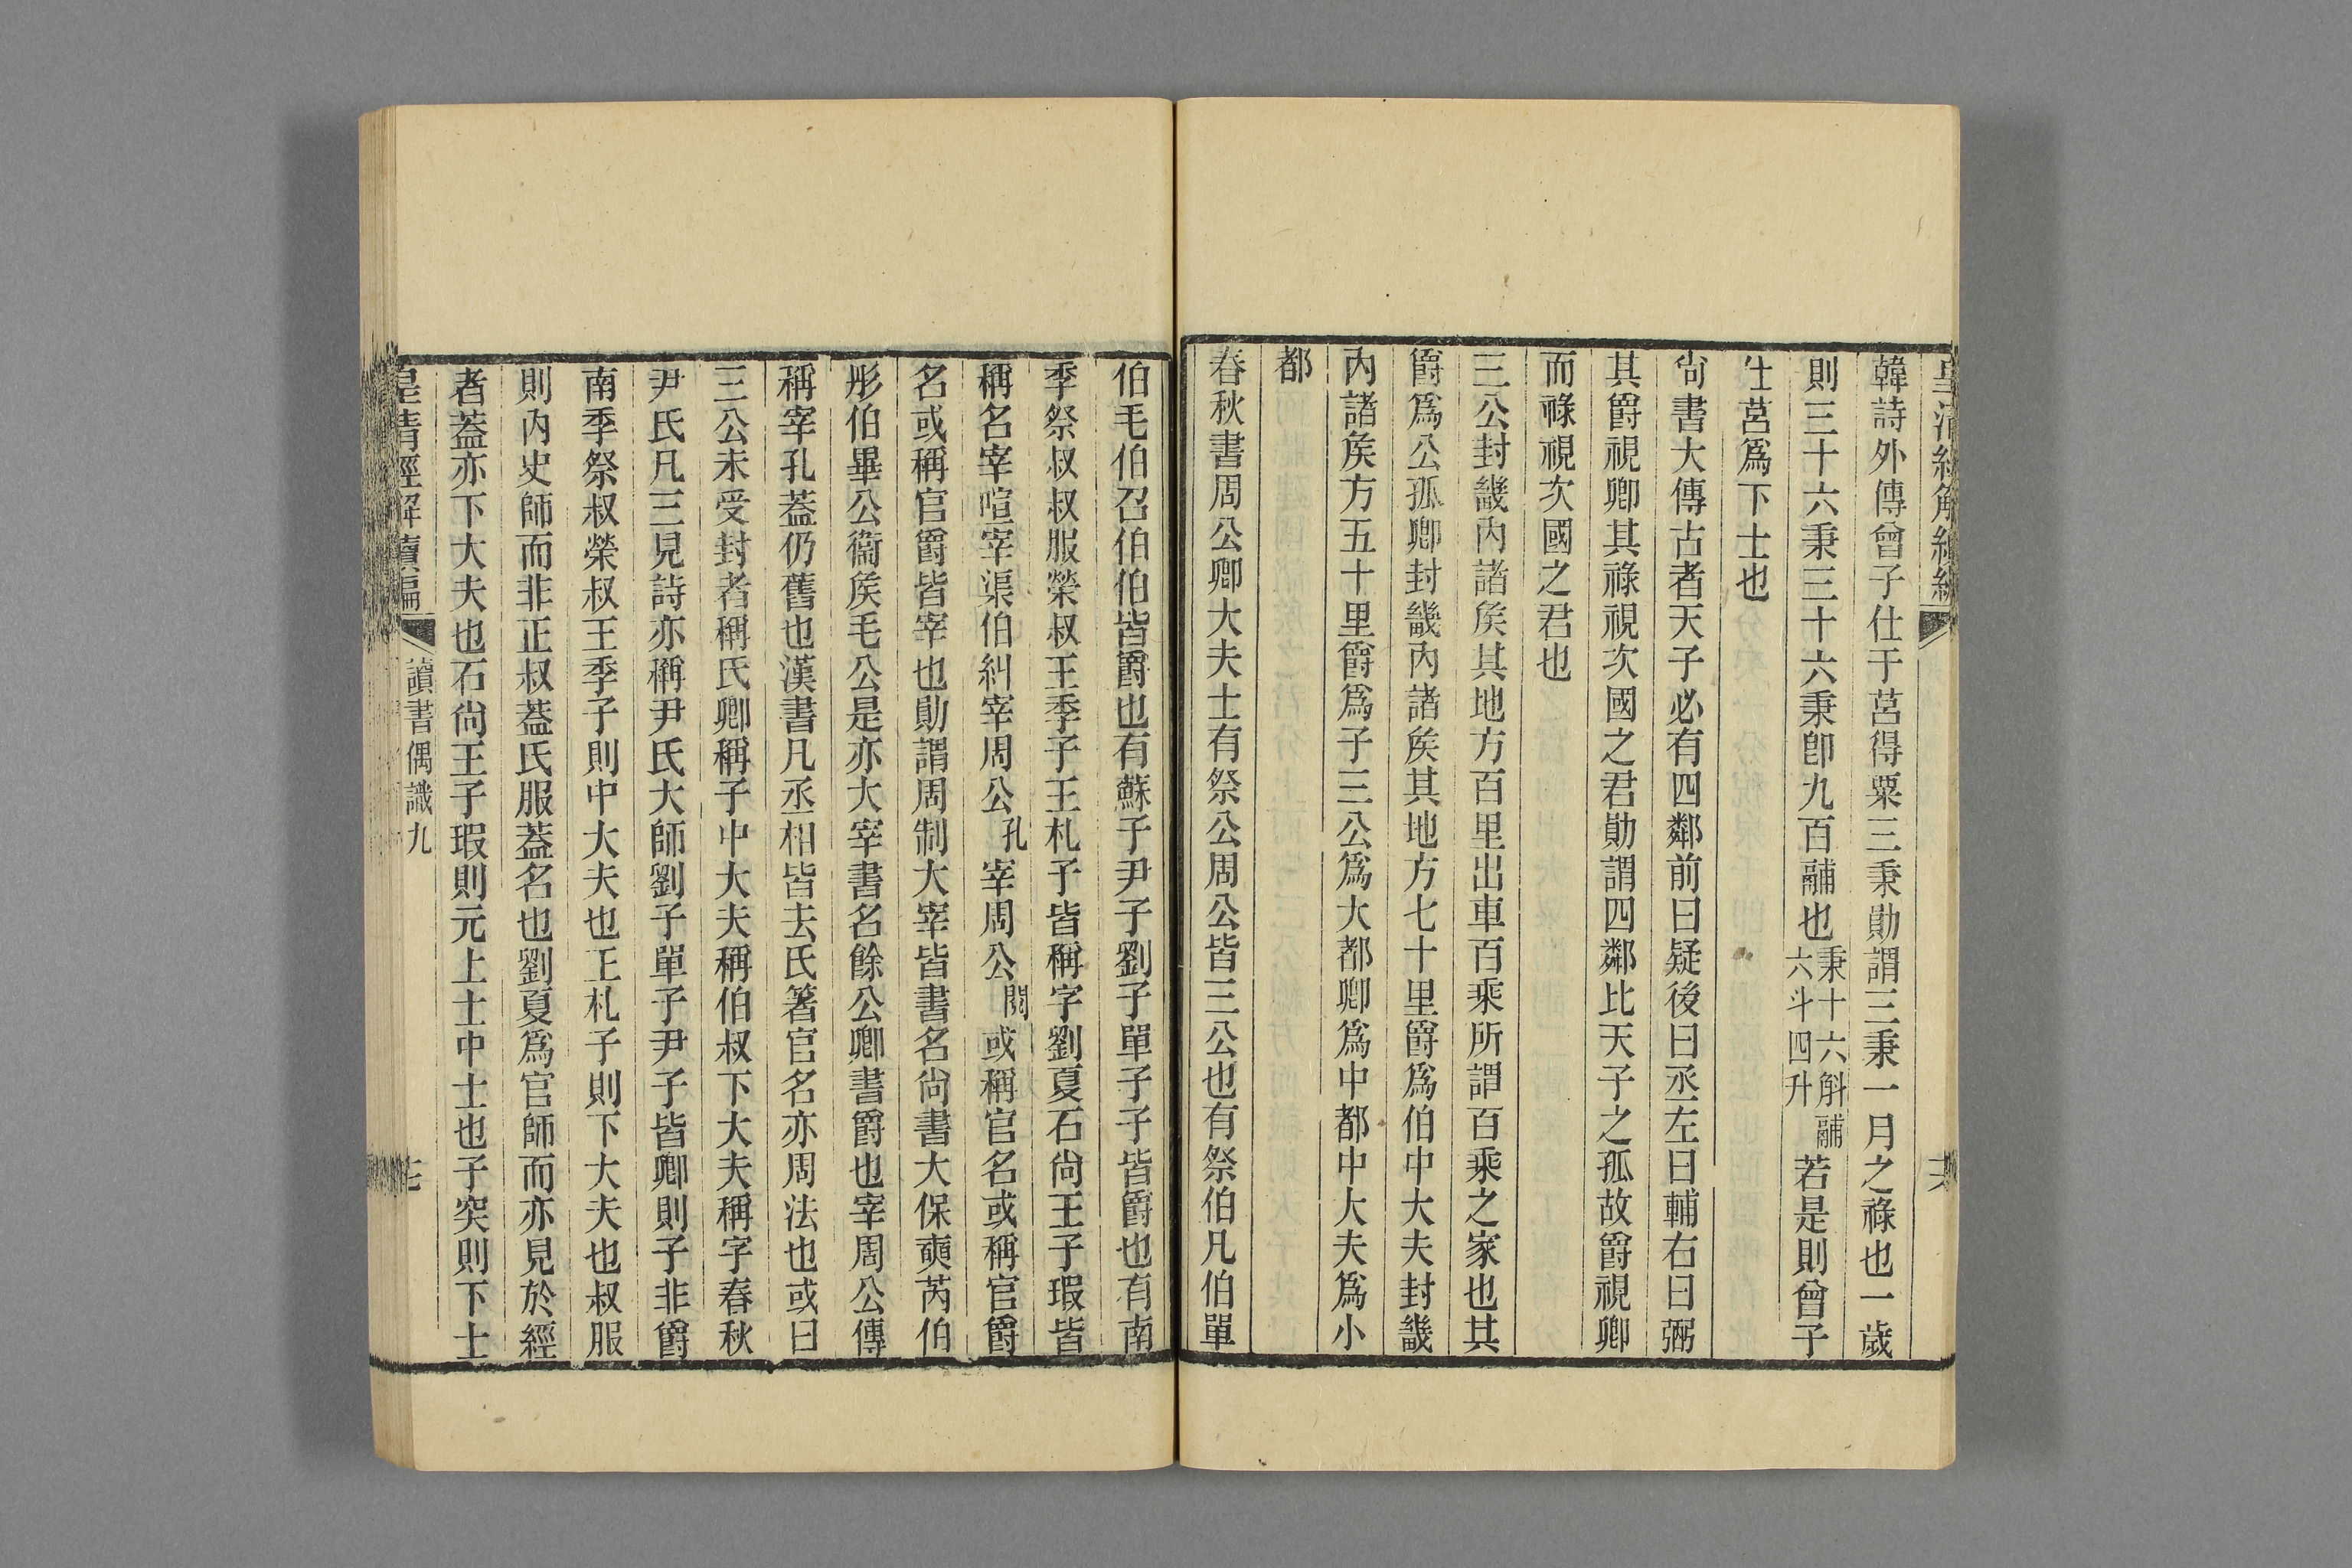 韓詩外傳曾子仕于莒得粟三秉勛謂三秉一月之祿也一歲
則三十六秉三十六秉卽九百䰞也秉十六斛䰞六斗四升若是則曾子
仕莒爲下士也
尙書大傳古者天子必有四鄰前曰疑後曰丞左曰輔右曰弼
其爵視卿其祿視次國之君勛謂四鄰比天子之孤故爵視卿
而祿視次國之君也
三公封畿內諸矦其地方百里出車百乘所謂百乘之家也其
爵爲公孤卿封畿內諸矦其地方七十里爵爲伯中大夫封畿
內諸矦方五十里爵爲子三公爲大都卿爲中都中大夫爲小
都
春秋書周公卿大夫士有祭公周公皆三公也有祭伯凡伯單
伯毛伯召伯伯皆爵也有蘇子尹子劉子單子子皆爵也有南
季祭叔叔服榮叔王季子王札子皆稱字劉夏石尙王子瑕皆
稱名宰咺宰渠伯糾宰周公孔宰周公閱或稱官名或稱官爵
名或稱官爵皆宰也勛謂周制大宰皆書名尙書大保奭芮伯
彤伯畢公衞矦毛公是亦大宰書名餘公卿書爵也宰周公傳
稱宰孔蓋仍舊也漢書凡丞相皆去氏箸官名亦周法也或曰
三公未受封者稱氏卿稱子中大夫稱伯叔下大夫稱字春秋
尹氏凡三見詩亦稱尹氏大師劉子單子尹子皆卿則子非爵
南季祭叔榮叔王季子則中大夫也王札子則下大夫也叔服
則內史師而非正叔蓋氏服蓋名也劉夏爲官師而亦見於經
者蓋亦下大夫也石尙王子瑕則元上士中士也子突則下士
皇清經解續編
讀書偶識九